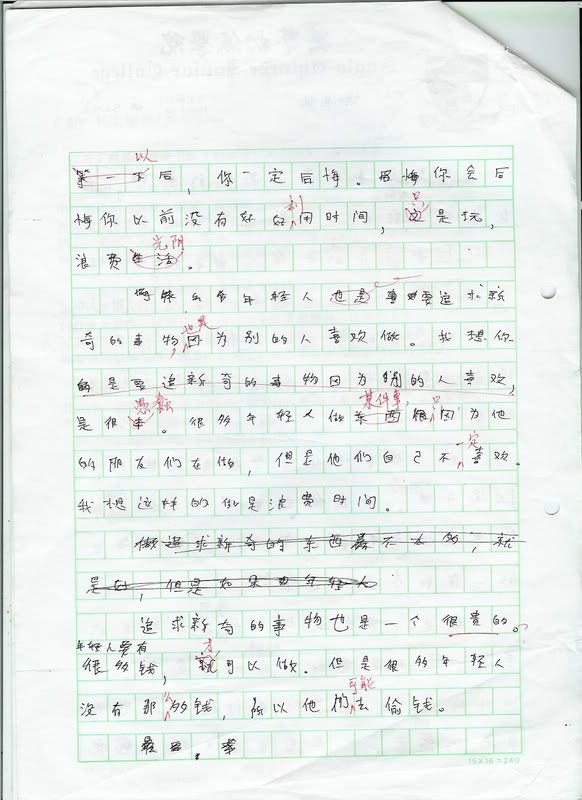 以
第一下后，你一定后悔。后悔你会后
利
悔你以前没有好好用时间，这是玩，
只
光阴
浪费生活。
年轻人也是要追求新
也是
奇的事物，因为别的人喜欢做。我想你
是要追新奇的事物因为别的人喜欢，
愚蠢
某件事，只
是很。很多年轻人做东西很因为他
一定
的朋友们在做，但是他们自己不喜欢。
我想这样的做是浪费时间。
做追求新奇的东西不太多，就
是好，但是如果年轻人
追求新奇的事物也是一个很贵的。
年轻人要有
才
很多钱，就可以做。但是很多年轻人
么
可能
没有那多钱，所以他们去偷钱。
最
15X16=240